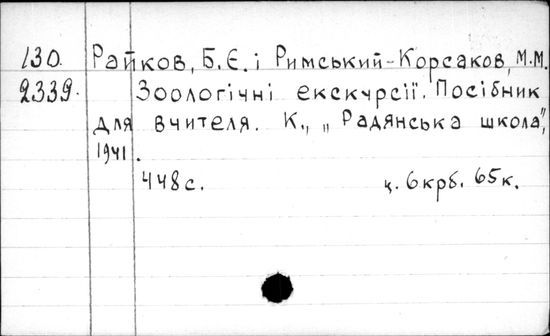 130. Райков, Б.Є. і Римський-Корсаков, М.М.
2339. Зоологічні екскурсії. Посібник
для вчителя. К., „Радянська школа",
1941.
448 с. ц. 6 крб. 65 к.